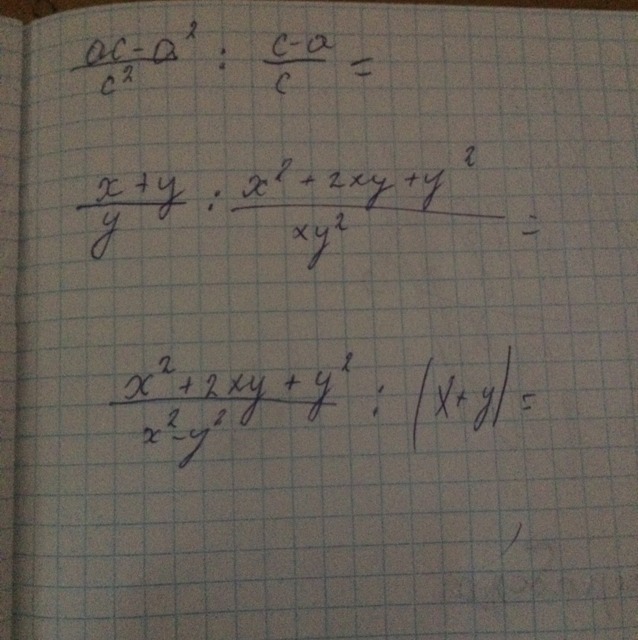 (ac-a²)/c² : (c-a)/c =
(x+y)/y : (x²+2xy+y²)/(xy²) =
(x²+2xy+y²)/(x²-y²) : (x+y) =